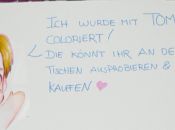 ICH WURDE MIT TOM
COLORIERT!
DIE KÖNNT IHR AN DE
TISCHEN AUSPROBIEREN &
KAUFEN